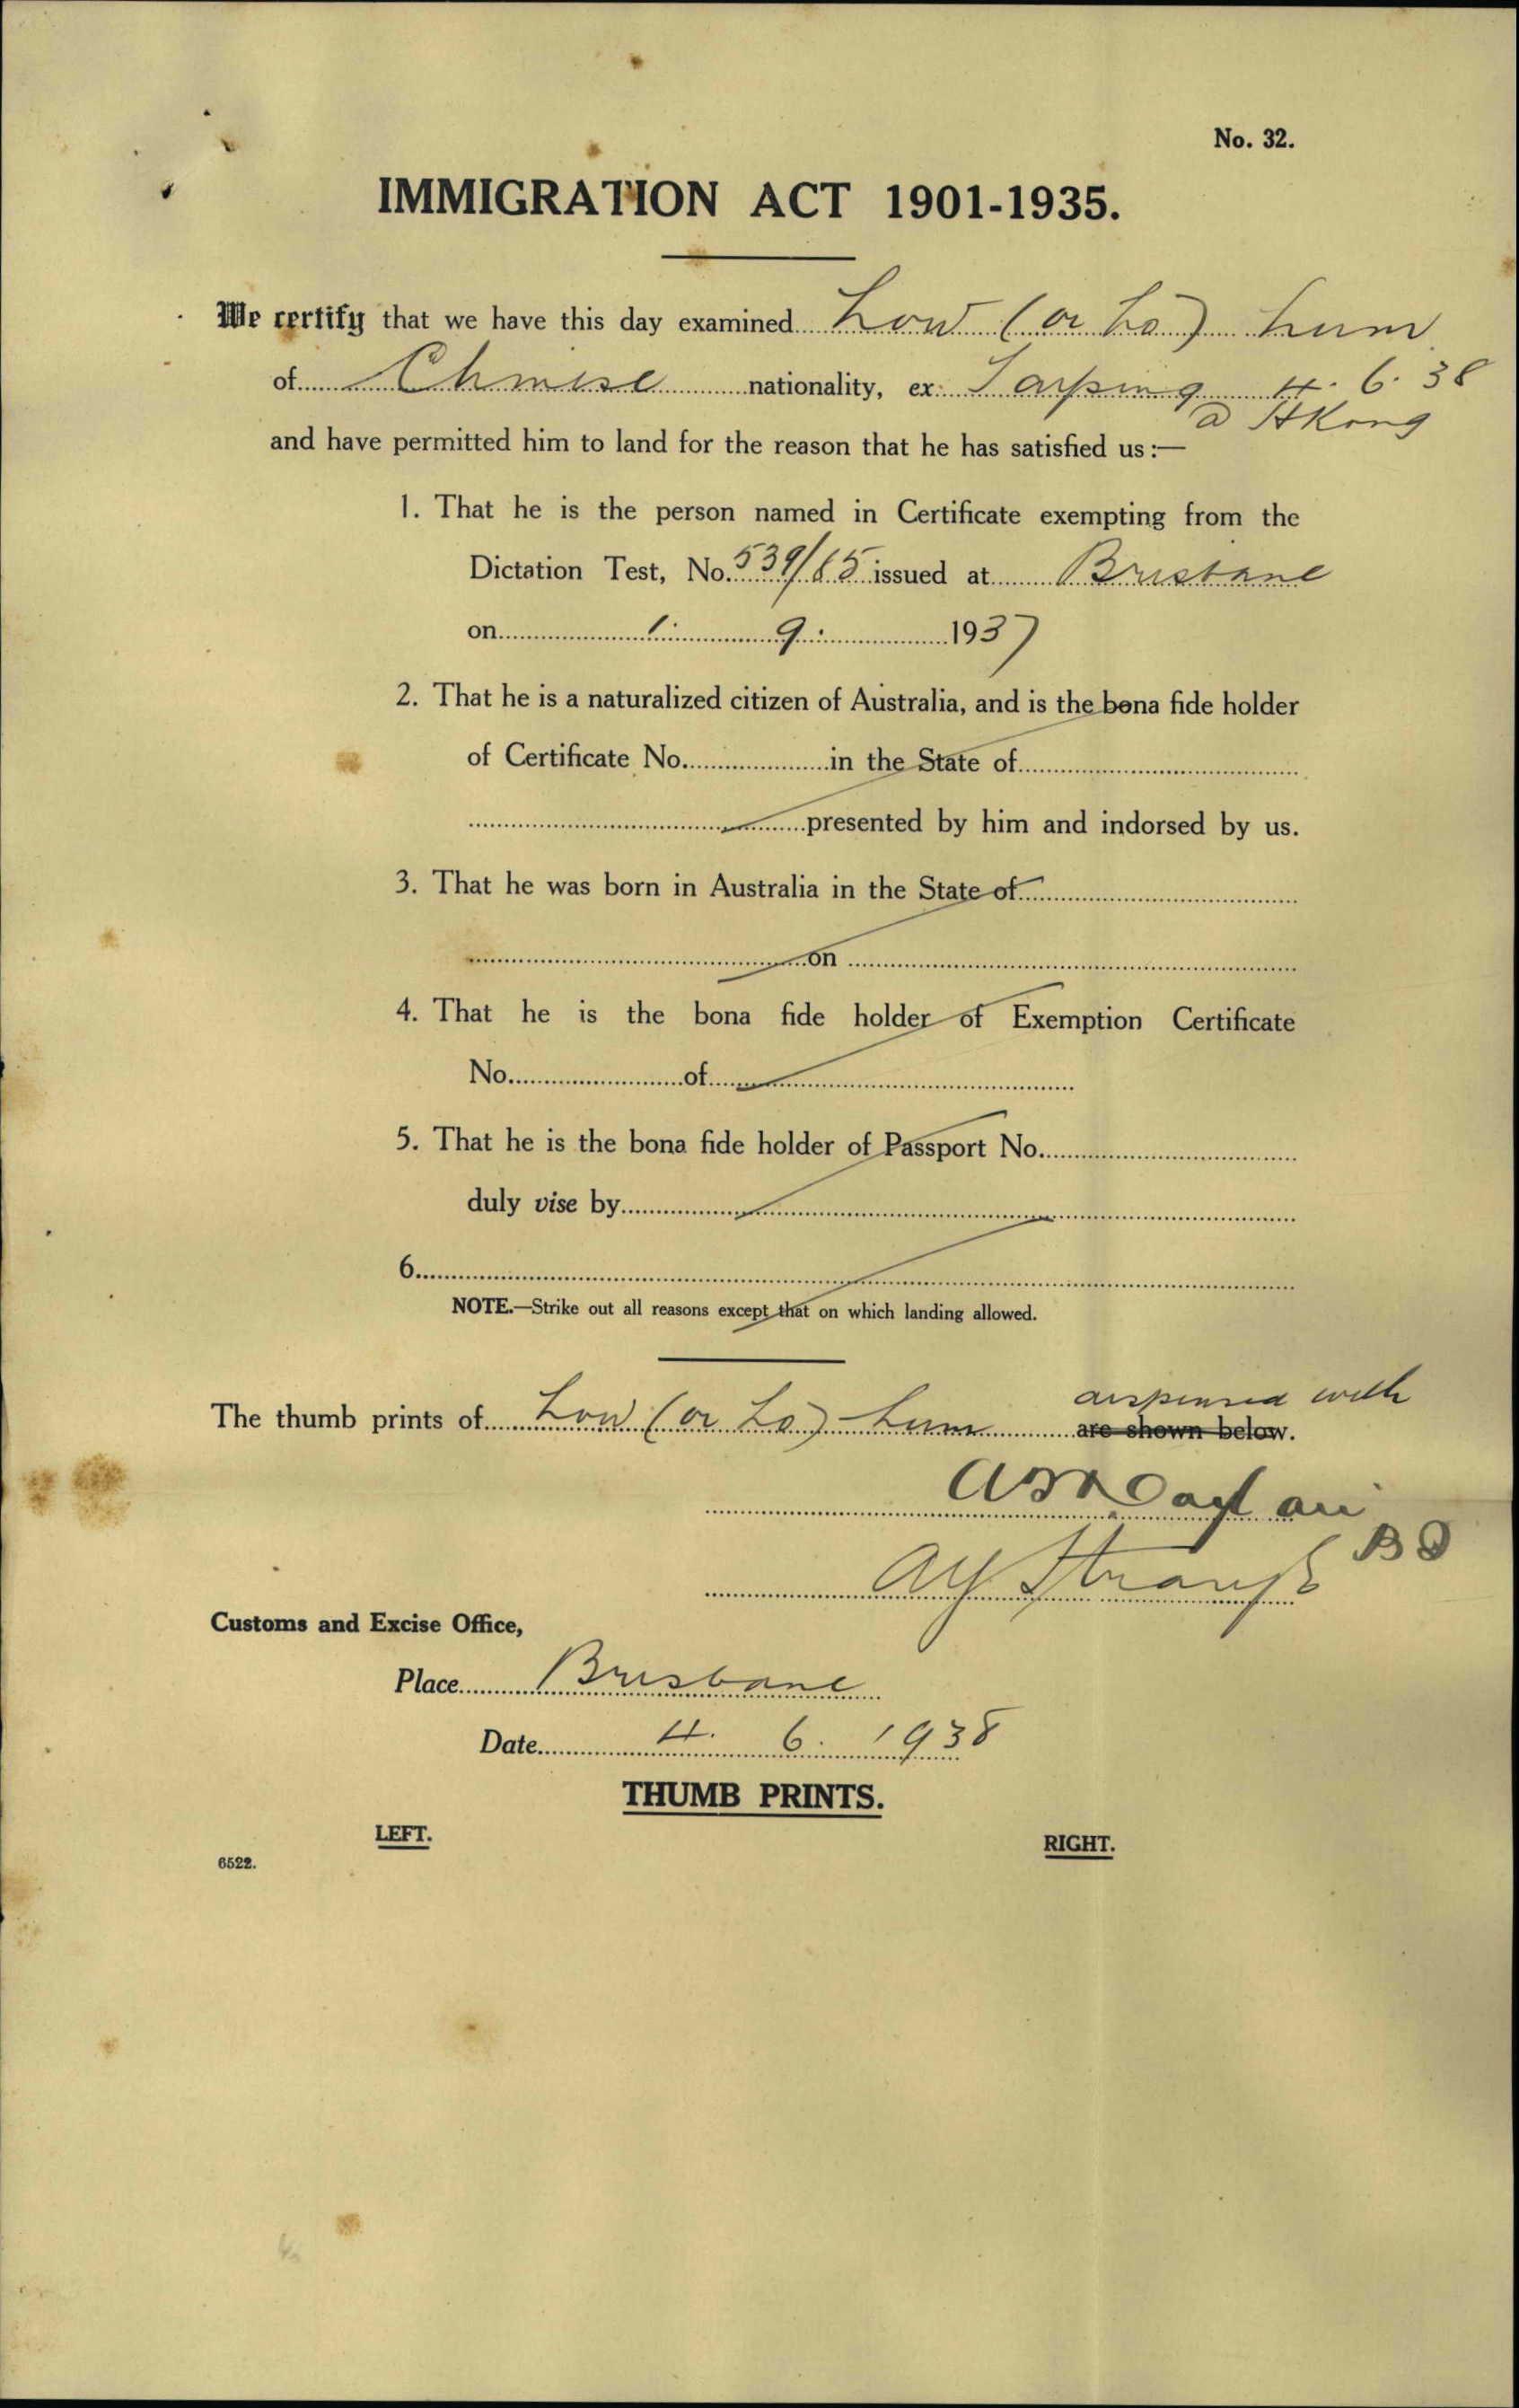 No. 32.
IMMIGRATION ACT 1901-1935.
We certify that we have this day examined Low (or Lo) Lum
of Chinese nationality, ex. Taiping 4. 6. 38
@ HKong
and have permitted him to land for the reason that he has satisfied us:—
1. That he is the person named in Certificate exempting from the
Dictation Test, No. 539/85 issued at Brisbane
on 1. 9. 1937
2. That he is a naturalized citizen of Australia, and is the bona fide holder
of Certificate No. in the State of
presented by him and indorsed by us.
3. That he was born in Australia in the State of
on
4. That he is the bona fide holder of Exemption Certificate
No. of
5. That he is the bona fide holder of Passport No.
duly vise by
6
NOTE.—Strike out all reasons except that on which landing allowed.
dispensed with
The thumb prints of Low (or Lo) Lum are shown below.
BO
Customs and Excise Office,
Place Brisbane
Date 4. 6. 1938
THUMB PRINTS.
LEFT.
RIGHT.
6522.